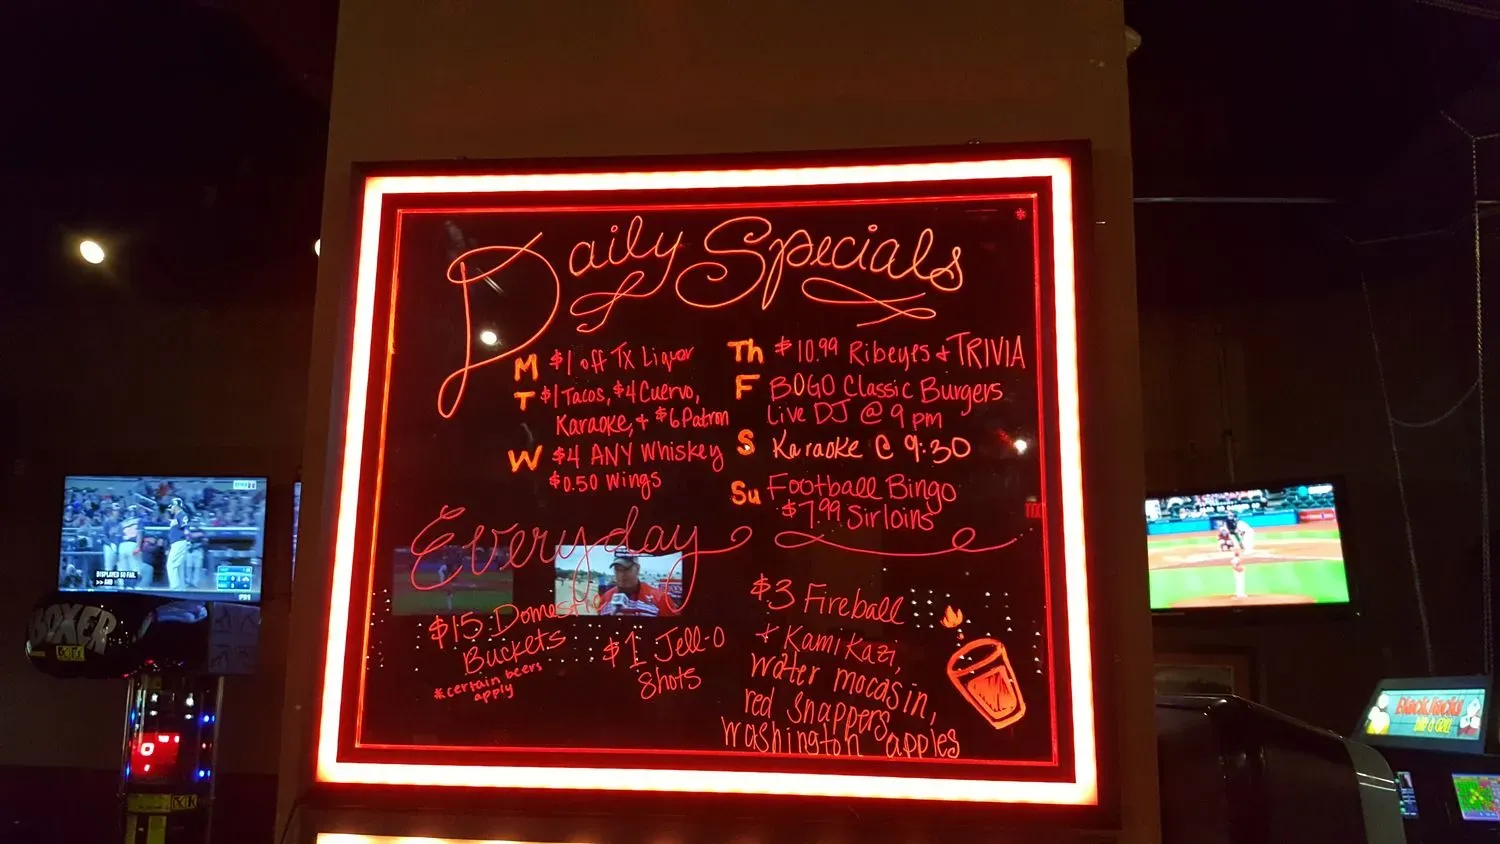 Daily Specials
M $1 off TX Liquor
T $1 Tacos, $4 Cuervo,
Karaoke, + $6 Patron
W $4 ANY Whiskey
$0.50 Wings
Th $10.99 Ribeyes + TRIVIA
F BOGO Classic Burgers
Live DJ @ 9 pm
S Karaoke @ 9:30
Su Football Bingo
$7.99 Sirloins
Everyday
$15 Domestic
Buckets
*certain beers
apply
$1 Jell-O
Shots
$3 Fireball
+ Kamikazi,
water mocasin,
red snappers
washington apples
BOXER